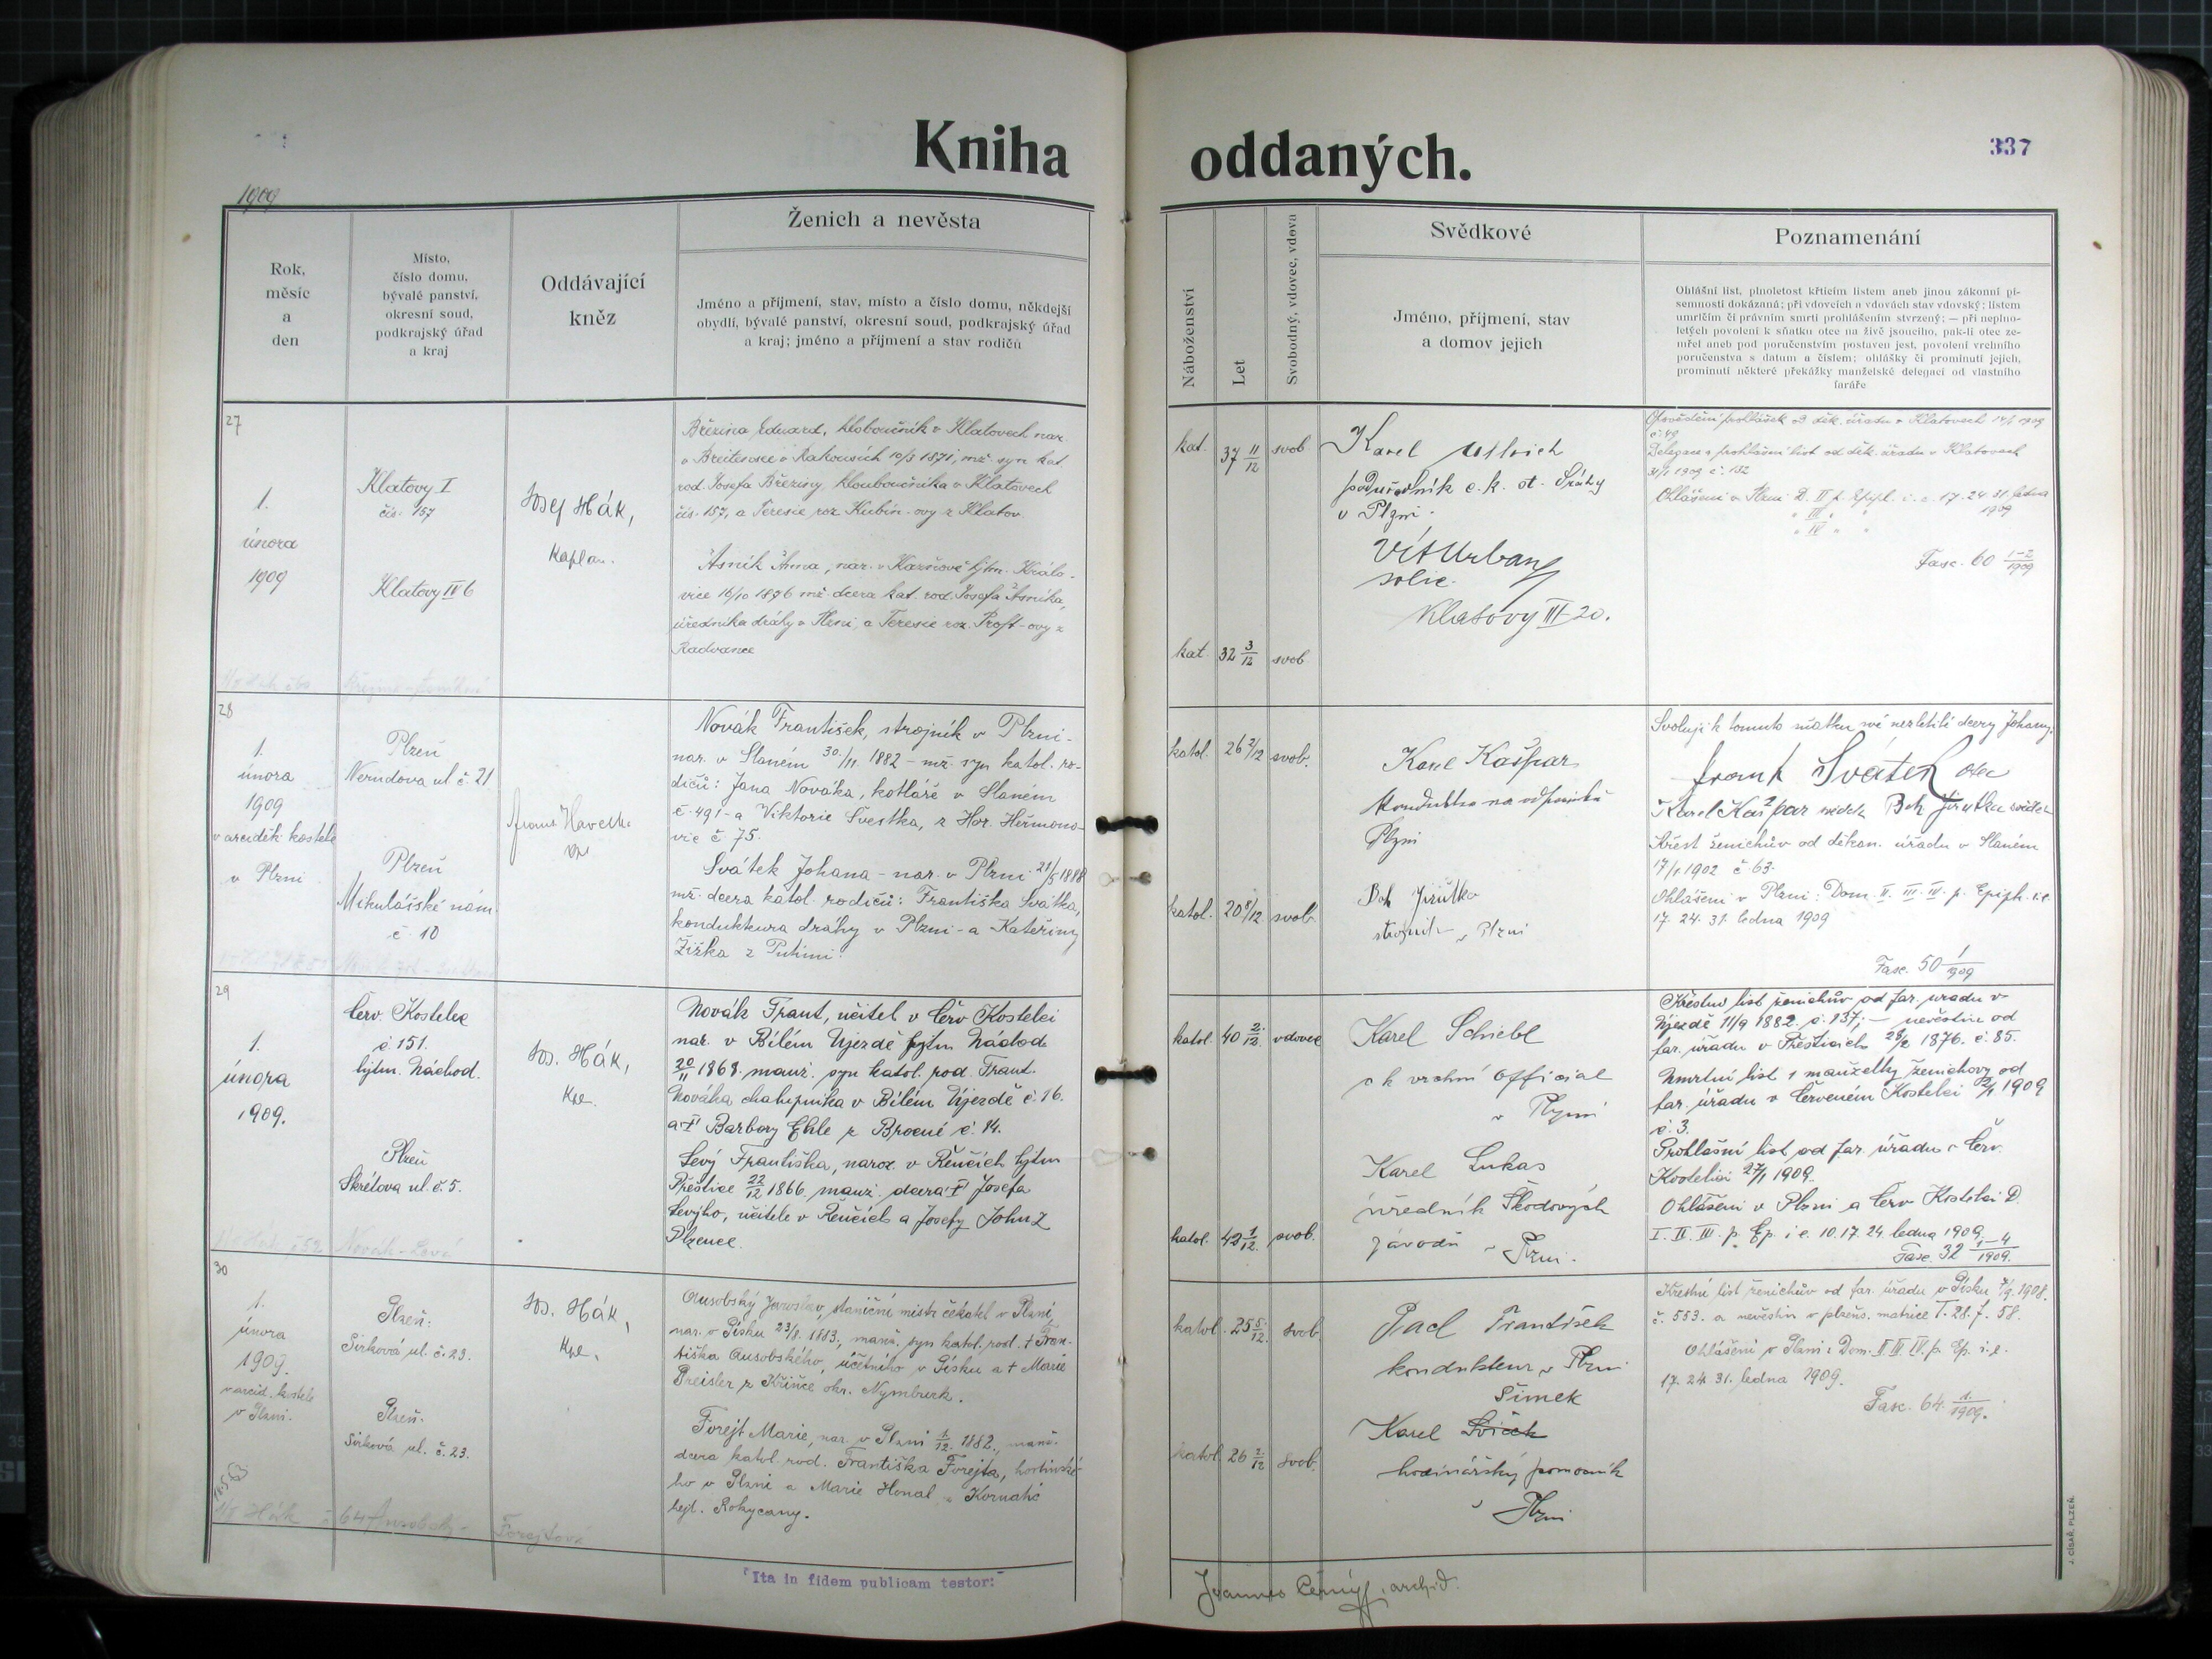 Kniha oddaných.
337
1909
Rok,
měsíc
a
den
Místo,
číslo domu,
bývalé panství,
okresní soud,
podkrajský úřad
a kraj
Oddávající
kněz
Ženich a nevěsta
Jméno a příjmení, stav, místo a číslo domu, někdejší
obydlí, bývalé panství, okresní soud, podkrajský úřad
a kraj; jméno a příjmení a stav rodičů
Náboženství
Let
Svobodný, vdovec, vdova
Svědkové
Jméno, příjmení, stav
a domov jejich
Poznamenání
Ohlášní list, plnoletost křticím listem aneb jinou zákonní pí-
semností dokázaná; při vdovcích a vdovách stav vdovský; listem
umrlčím či právním smrti prohlášením stvrzený; — při neplno-
letých povolení k sňatku otce na živě jsoucího, pak-li otec ze-
mřel aneb pod poručenstvím postaven jest, povolení vrchního
poručenstva s datum a číslem; ohlášky či prominutí jejich,
prominutí některé překážky manželské delegací od vlastního
faráře
27
1.
února
1909
Klatovy I
čís. 157
Klatovy IV 6
Josef Hák,
Kaplan.
Březina Eduard, kloboučník v Klatovech nar.
v Rakousích 10/3 1871, mž. syn kat.
rod. Josefa Březiny, klouboučníka v Klatovech
čís. 157, a Teresie roz. Kubín-ovy z Klatov.
Anna, nar. v Kaznově hjtm. Králo-
vice 16/10 1876 mž. dcera kat. rod. Josefa
úředníka dráhy v Plzni, a Teresie roz. Proft-ovy z
Radvance
kat. 37 11/12 svob
kat. 32 3/12 svob
Karel Ullrich
podúředník c. k. st. dráhy
v Plzni.
Vít Urban
solic.
Klatovy III 20.
Osvědčení prohlášek od děk. úřadu v Klatovech 14/1 1909
č. 49
Delegace a prohlášní list od děk. úřadu v Klatovech
31/1 1909 č. 132
Ohlášeni v Plzni D. II p. Epiph. i. e. 17. 24. 31. ledna
1909
" III " "
" IV " "
Fasc. 60 1-2/1909
28
1.
února
1909
v arciděk. kostele
v Plzni
Plzeň
Nerudova ul č. 21
Plzeň
Mikulášské nám.
č. 10
Novák František, strojník v Plzni -
nar. v Slaném 30./11. 1882 - mž. syn katol. ro-
dičů: Jana Nováka, kotláře v Slaném
č. 491 - a Viktorie Švestka, z Hor. Heřmano-
vic č 75.
Svátek Johana - nar. v Plzni 21/5 1888
mž. dcera katol. rodičů: Františka Svátka,
kondukteura dráhy v Plzni - a Kateřiny
Žižka z Putimi.
katol. 26 2/12 svob.
katol. 20 8/12 svob.
Karel Kašpar
Plzni
Boh Jirutka
strojník v Plzni
Svoluji k tomuto sňatku své nezletilé dcery Johany.
Frant Svátek otec
Karel Kašpar svědek Boh. Jirutka svědek
Křest ženichův od děkan. úřadu v Slaném
17/1 1902 č 63.
Ohlášeni v Plzni: Dom. II. III. IV. p. Epiph. i.e.
17. 24. 31. ledna 1909
Fasc. 50 1/1909
29
1.
února
1909.
Červ. Kostelec
č 151.
hjtm. Náchod.
Plzeň
Skrétova ul. č. 5.
Jos. Hák,
Kpl.
Novák Frant, učitel v Červ Kostelci
nar. v Bílém Újezdě hjtm Náchod
20/11 1868. manž. syn katol. rod. Frant.
Nováka chalupníka v Bílém Újezdě č. 16.
a † Barbory Ehle z Brocné č. 14.
Levý Františka, naroz. v Řenčích hjtm
Přeštice 22/12 1866. manž. dcera † Josefa
Levýho, učitele v Řenčích a Josefy John z
Plzence.
katol. 40 2/12 vdovec
katol. 42 1/12 svob.
Karel Schiebl
c k vrchní official
v Plzni
Karel Lukas
úředník Škodových
závodů v Plzni.
Křestní list ženichův od far. úřadu v
Újezdě 11/9 1882. č. 137; — nevěstin od
far. úřadu v Přešticích 28/2 1876. č. 85.
Úmrtní list 1 manželky ženichovy od
far. úřadu v Červeném Kostelci 1909
č. 3.
Prohlášní list od far. úřadu v Červ.
Kostelci 27/1 1909.
Ohlášeni v Plzni a Červ Kostelci D.
I. II. III. p. Ep. i e. 10. 17. 24. ledna 1909.
Fasc. 32 1-4/1909.
30
1.
února
1909.
v arcid. kostele
v Plzni.
Plzeň:
Sirková ul. č. 23.
Plzeň:
Sirková ul. č. 23.
Jos. Hák,
Kpl.
Ausobský Jaroslav, staniční mistr čekatel v Plzni,
nar. v Písku 23/8. 1883, manž. syn katol. rod. † Fran-
tiška Ausobského, účetního v Písku a † Marie
Preisler z Křince okr. Nymburk.
Forejt Marie, nar. v Plzni 1/12. 1882., manž.
dcera katol. rod. Františka Forejta, hostinské-
ho v Plzni a Marie Honal z Kornatic
hejt. Rokycany.
katol. 25 5/12 svob.
katol. 26 2/12 svob.
Pacl František
kondukteur v Plzni
Šimek
Karel
hodinářský pomocník
v Plzni
Křestní list ženichův od far. úřadu v Písku 1908.
č. 553. a nevěstin v plzeňs. matrice T. 28. f. 58.
Ohlášeni v Plzni: Dom. II III IV. p. Ep. i. e.
17. 24. 31. ledna 1909.
Fasc. 64. 1./1909.
"Ita in fidem publicam testor:"
Joannes Černý, archid.
J. CÍSAŘ, PLZEŇ.